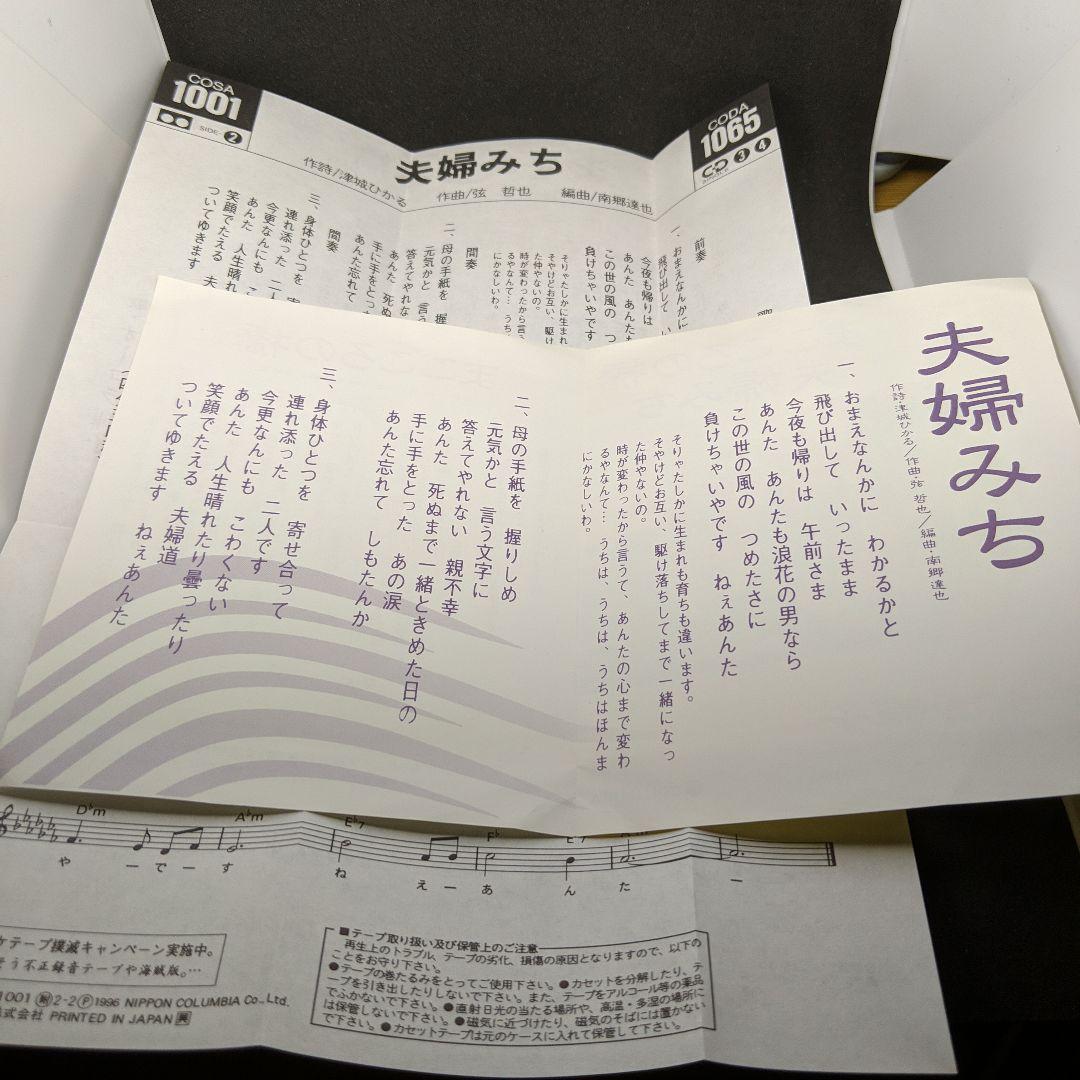 COSA
1001
SIDE 2
CODA
1065
CD 3 4
夫婦みち
作詩/津城ひかる
作曲/弦 哲也
編曲/南郷達也
前奏
一、おまえなんかに
飛び出して い
今夜も帰りは
あんた あんたも
この世の風の つ
負けちゃいやです
そりゃたしかに生まれ
そやけどお互い、駆け
た仲やないの。
時が変わったから言う
るやなんて… うち
にかなしいわ。
間奏
二、母の手紙を 握
元気かと 言う
答えてやれな
あんた 死ぬ
手に手をとっ
あんた忘れて
間奏
三、身体ひとつを 寄
連れ添った 二人
今更なんにも こ
あんた 人生晴れ
笑顔でたえる 夫
ついてゆきます
夫婦みち
作詩・津城ひかる/作曲・弦 哲也/編曲・南郷達也
一、おまえなんかに わかるかと
飛び出して いったまま
今夜も帰りは 午前さま
あんた あんたも浪花の男なら
この世の風の つめたさに
負けちゃいやです ねぇあんた
そりゃたしかに生まれも育ちも違います。
そやけどお互い、駆け落ちしてまで一緒になっ
た仲やないの。
時が変わったから言うて、あんたの心まで変わ
るやなんて… うちは、うちは、うちはほんま
にかなしいわ。
二、母の手紙を 握りしめ
元気かと 言う文字に
答えてやれない 親不幸
あんた 死ぬまで一緒ときめた日の
手に手をとった あの涙
あんた忘れて しもたんか
三、身体ひとつを 寄せ合って
連れ添った 二人です
今更なんにも こわくない
あんた 人生晴れたり曇ったり
笑顔でたえる 夫婦道
ついてゆきます ねぇあんた
D♭m A♭m E♭7 F♭ E♭7
や ー で ー す ね え ー あ ん た ー
ケテープ撲滅キャンペーン実施中。
そう不正録音テープや海賊版。…
1001 2-2 Ⓟ1996 NIPPON COLUMBIA Co., Ltd.
株式会社 PRINTED IN JAPAN
■テープ取り扱い及び保管上のご注意
再生上のトラブル、テープの劣化、損傷の原因となりますので、以下の
ことをお守り下さい。
●テープの巻たるみをとってご使用下さい。●カセットを分解したり、テ
ープを引き出したりしないで下さい。また、テープをアルコール等の薬品
でふかないで下さい。●直射日光の当たる場所や、高温・多湿の場所に
は保管しないで下さい。●磁気に近づけたり、磁気のそばには置かない
で下さい。●カセットテープは元のケースに入れて保管して下さい。